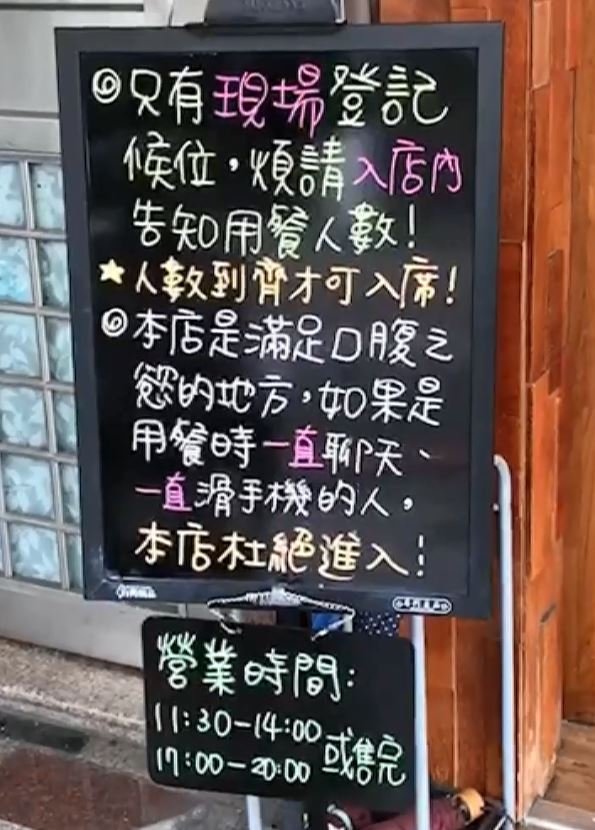 ◎只有現場登記
候位，煩請入店內
告知用餐人數！
★人數到齊才可入席！
◎本店是滿足口腹之
慾的地方，如果是
用餐時一直聊天、
一直滑手機的人，
本店杜絕進入！
營業時間：
11:30-14:00
17:00-20:00 或售完